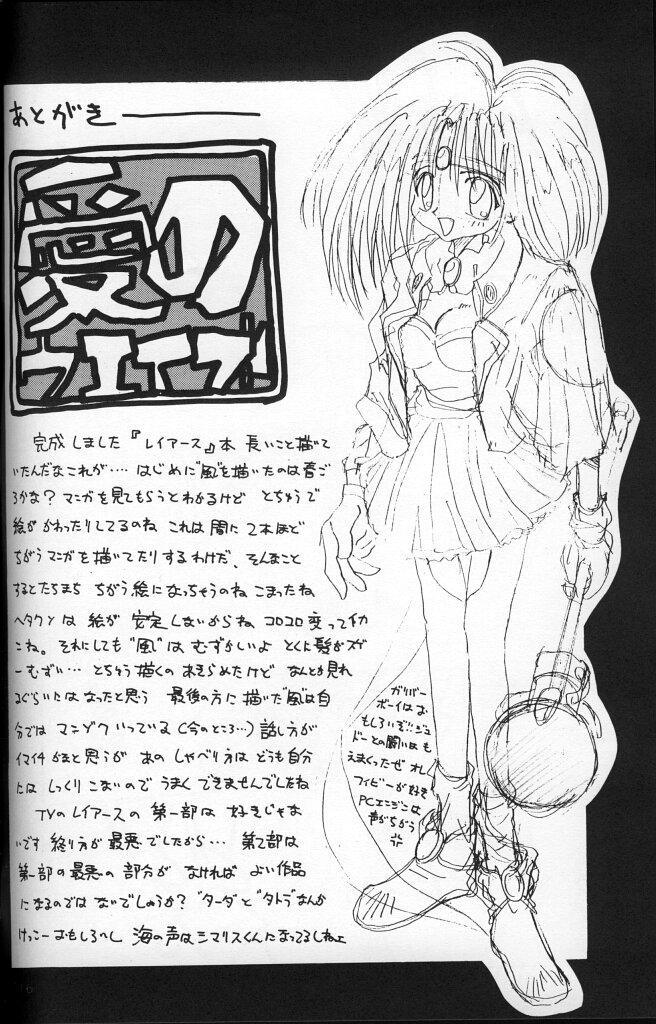 あとがき
愛の
ウエイブ
完成しました『レイアース』本 長いこと描いて
いたんだなこれが‥‥ はじめに"風"を描いたのは春ご
ろかな？マンガを見てもらうとわかるけど とちゅうで
絵が かわったりしてるのね これは間に2本ほど
ちがうマンガを描いてたりするわけだ、そんなこと
するとたちまち ちがう絵になっちゃうのね こまったね
ヘタクソは 絵が 安定しないからね コロコロ変ってイカ
こね。それにしても"風"はむずかしいよ とくに髪がスゲ
ーむずい… とちゅう描くのあきらめたけど なんとか見れ
るぐらいにはなったと思う 最後の方に描いた"風"は自
分では マンゾクいっている（今のところ…）話し方が
イマイチかなと思うが あのしゃべり方は どうも自分
には しっくりこないので うまくできませんでしたね
TVのレイアースの 第一部は 好きじゃな
いです 終り方が最悪でしたから… 第2部は
第一部の最悪の部分が なければ よい作品
になるのでは ないでしょうか？"ターダ"と"タトラ"なんか
けっこーおもしろいし 海の声はシマリスくんになってるしねェ
ガリバー
ボーイは お
もしろいぞ!!ジュ
ドーとの闘いはも
えまくったぜ オレ
フィビーが好き
PCエンジンは
声がちがう
16